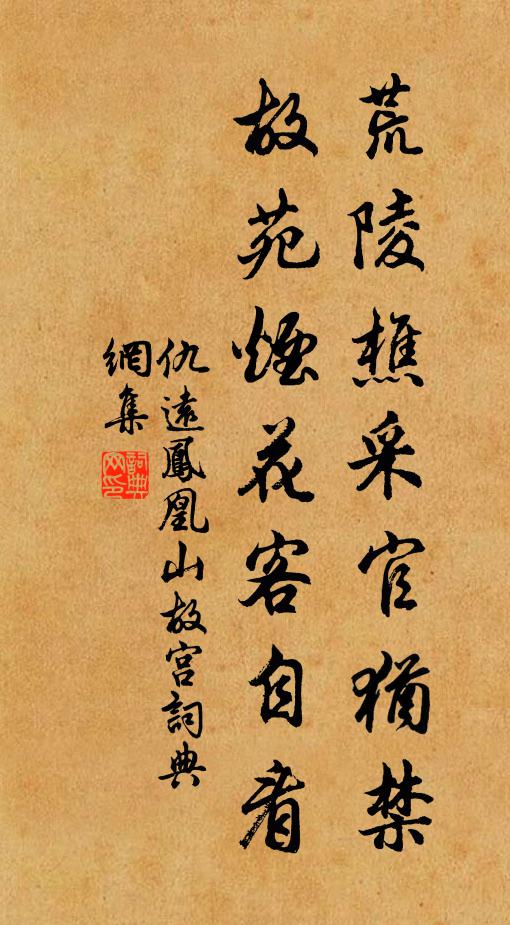 荒陵樵采官猶禁
故苑煙花客自看
仇遠鳳凰山故宮詞典
網集
詞典
网印